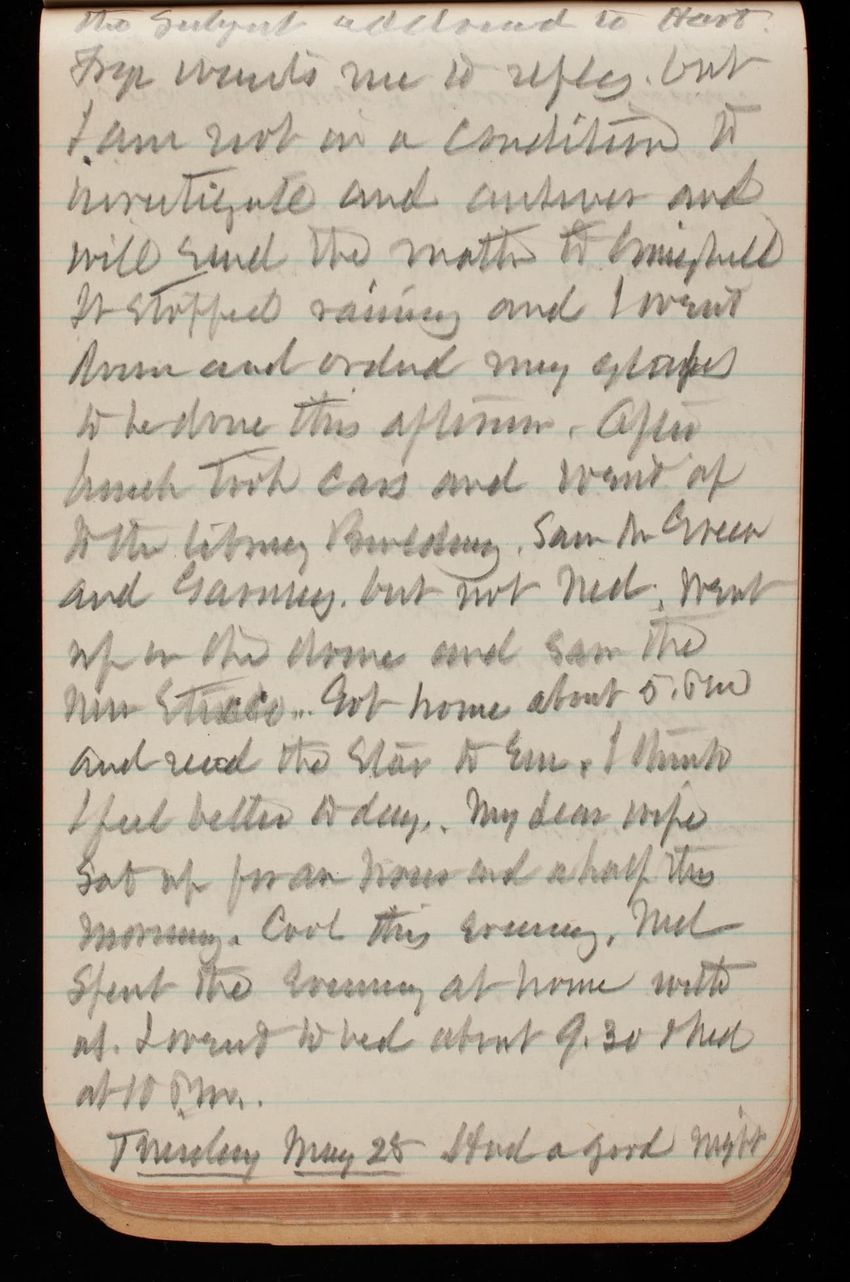 the subject addressed to Hart.
Frye wants me to reply. but
I am not in a condition to
investigate and answer and
will send the matter to
It stopped raining and I went
down and ordered my glasses
to be done this afternoon. After
lunch took cars and went up
to the Library Building. Saw Mr Green
and but not Ned. Went
up in the dome and saw the
new Stucco. Got home about 5. P M
and read the Star to Em. I think
I feel better to day. My dear wife
sat up for an hour and a half this
morning. Cool this evening. Ned
Spent the Evening at home with
us. I went to bed about 9.30 & Ned
at 10 P M.
Tuesday May 28 Had a good night